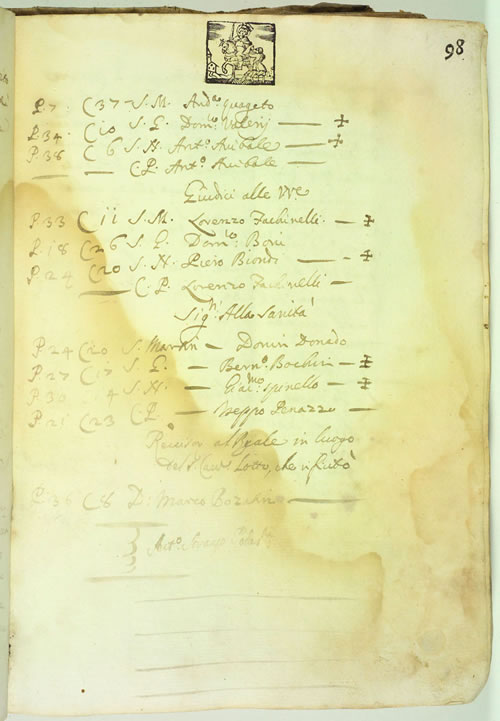 98
P. 7 C 37 S. M. And.o Quageto
P. 34 C 10 S. E. Dom.co Valerij — ‡
P. 38 C 6 S. N. Ant.o Anibale — ‡
— — C. P. Ant.o Anibale —
Giudici alle VVe
P. 33 C 11 S. M. Lorenzo Fachinelli — ‡
P. 18 C 26 S. E. Dom.co
P. 24 C 20 S. N. Piero Biondi — ‡
— C. P. Lorenzo Fachinelli —
Sig.ri Alla Sanità
P. 24 C 20 S. Martin — Domin Donado
P. 27 C 17 S. E. — Bern.o Bochin — ‡
P. 30 C 14 S. N. — Giac.mo Spinello — ‡
P. 21 C 23 C. P. —
al Reale in luogo
del S.r Cau.r Lotto, che rifiutò
P. 36 C 8 D: Marco
Ant.o